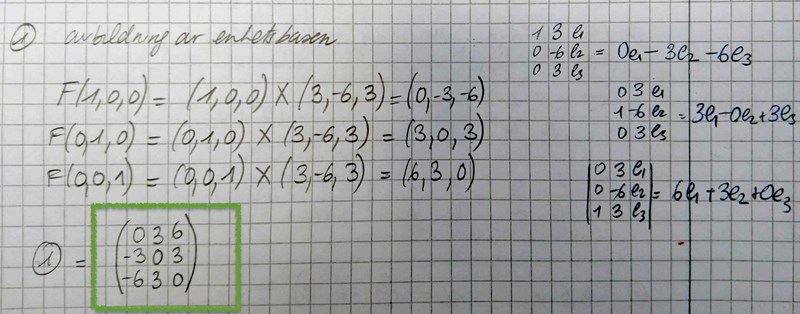 ① avbildning av enhetsbasen
F(1,0,0) = (1,0,0) × (3,-6,3) = (0,-3,-6)
F(0,1,0) = (0,1,0) × (3,-6,3) = (3,0,3)
F(0,0,1) = (0,0,1) × (3,-6,3) = (6,3,0)
① =
0 3 6
-3 0 3
-6 3 0
1 3 e₁
0 -6 e₂ = 0e₁ - 3e₂ - 6e₃
0 3 e₃
0 3 e₁
1 -6 e₂ = 3e₁ - 0e₂ + 3e₃
0 3 e₃
0 3 e₁
0 -6 e₂ = 6e₁ + 3e₂ + 0e₃
1 3 e₃